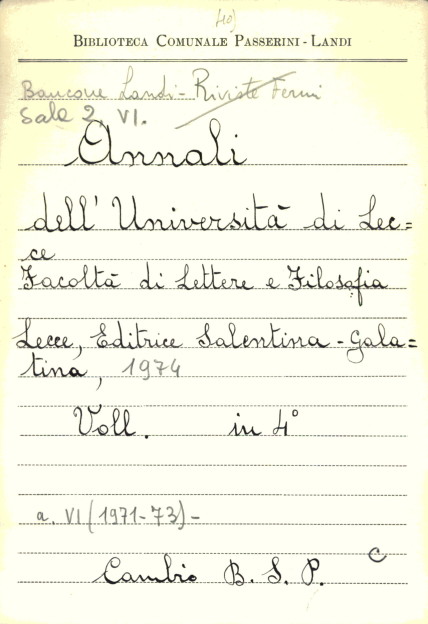 (10)
BIBLIOTECA COMUNALE PASSERINI - LANDI
Bancone Landi - Riviste Fermi
Sala 2, VI.
Annali
dell' Università di Lec=
ce
Facoltà di Lettere e Filosofia
Lecce, Editrice Salentina - Gala=
tina, 1974
Voll. in 4°
a. VI (1971-73) -
C
Cambio B. S. P.